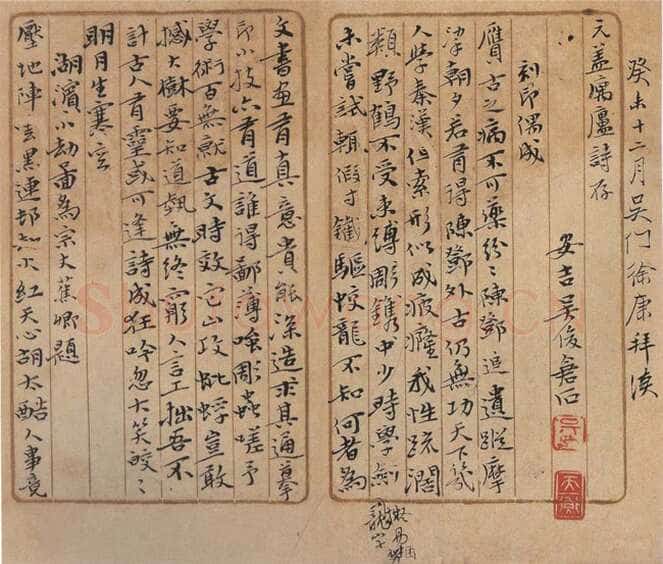 癸未十二月吴门徐康拜读
元盖寓廬詩存
安吉吴俊倉石
刻印偶成
贗古之病不可藥紛〻陳鄧追遺蹤摩
挲朝夕若有得陳鄧外古仍無功天下幾
人學秦漢但索形似成疲癃我性疏闊
類野鶴不受束縛彫鐫中少時學劍
未嘗試輒假寸鐵驅蛟龍不知何者為
文書畫有真意貴能深造求其通摹
印小技亦有道誰得鄙薄嗤彫蟲嗟予
學術百無就古文時效它山攻蚍蜉豈敢
撼大樹要知道藝無終窮人言工拙吾不
計古人有靈或可逢詩成狂吟忽大笑皎〻
明月生寒空
湖濱小劫圖為宗丈蕉卿題
壓地陣雲黑連邨如火紅天心胡太酷人事竟